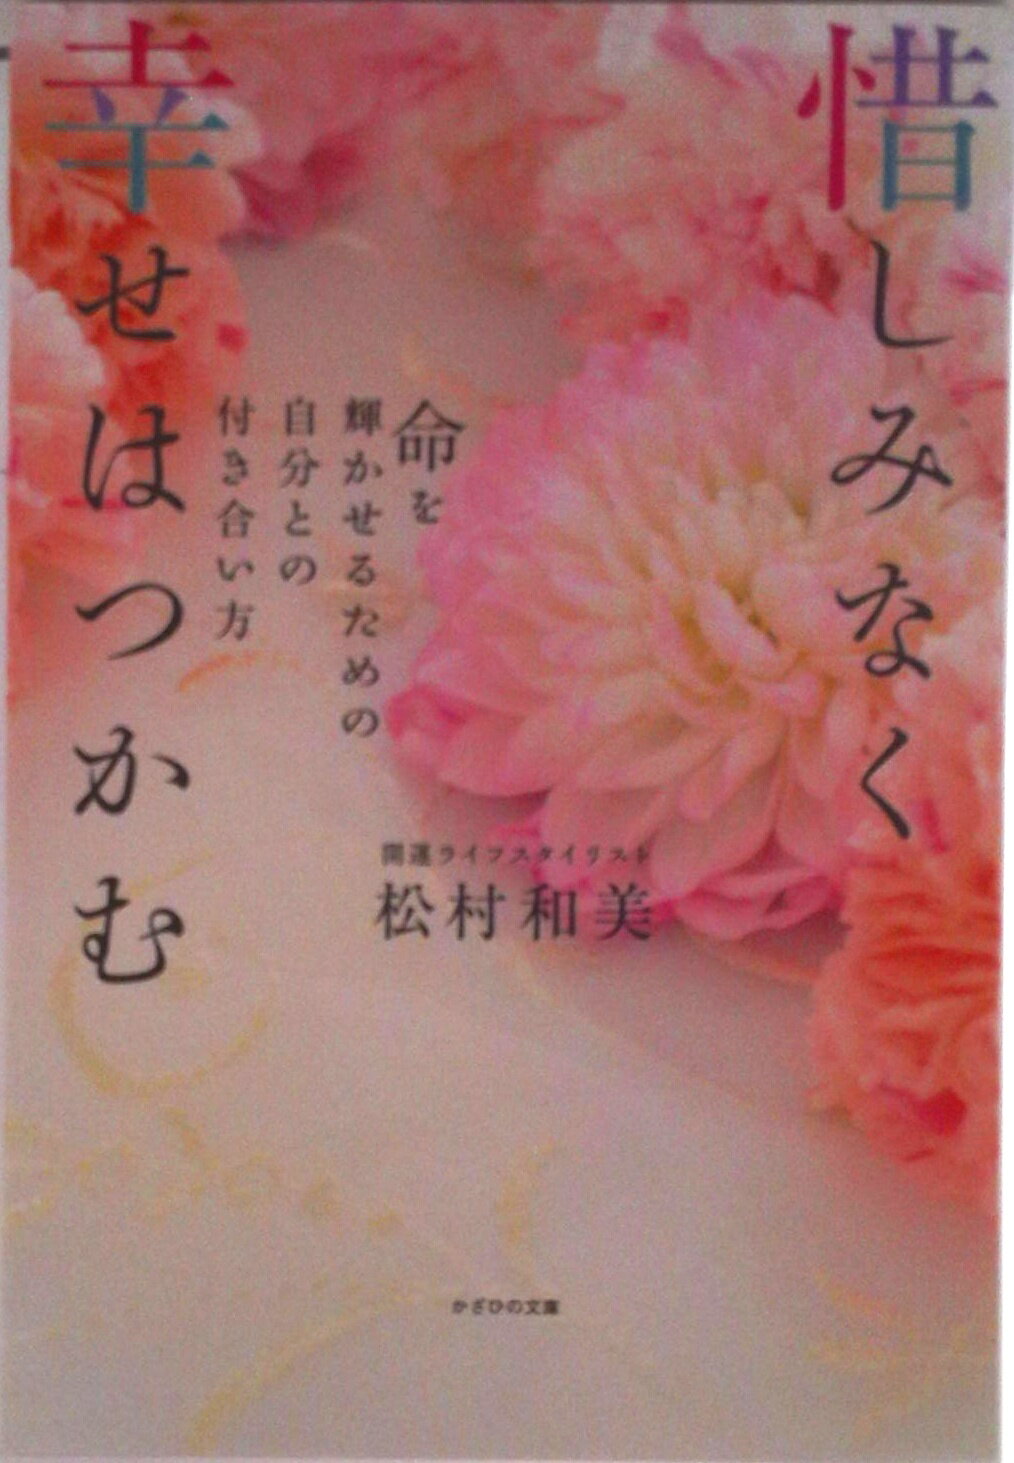 惜しみなく
幸せはつかむ
命を
輝かせるための
自分との
付き合い方
開運ライフスタイリスト
松村和美
かざひの文庫